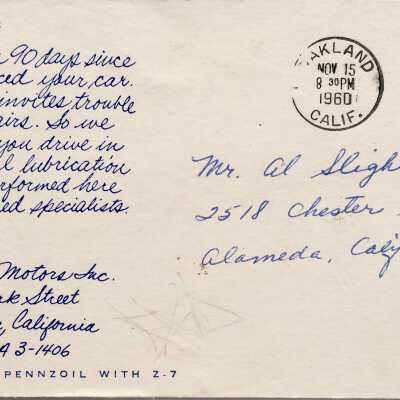 90 days since
ced your car.
invites trouble
airs. So we
you drive in
l lubrication
rformed here
ed specialists.
Motors Inc.
k Street
, California
A 3-1406
PENNZOIL WITH Z-7
OAKLAND
NOV 15
8 30PM
1960
CALIF.
Mr. Al Sligh
2518 Chester
Alameda, Calif